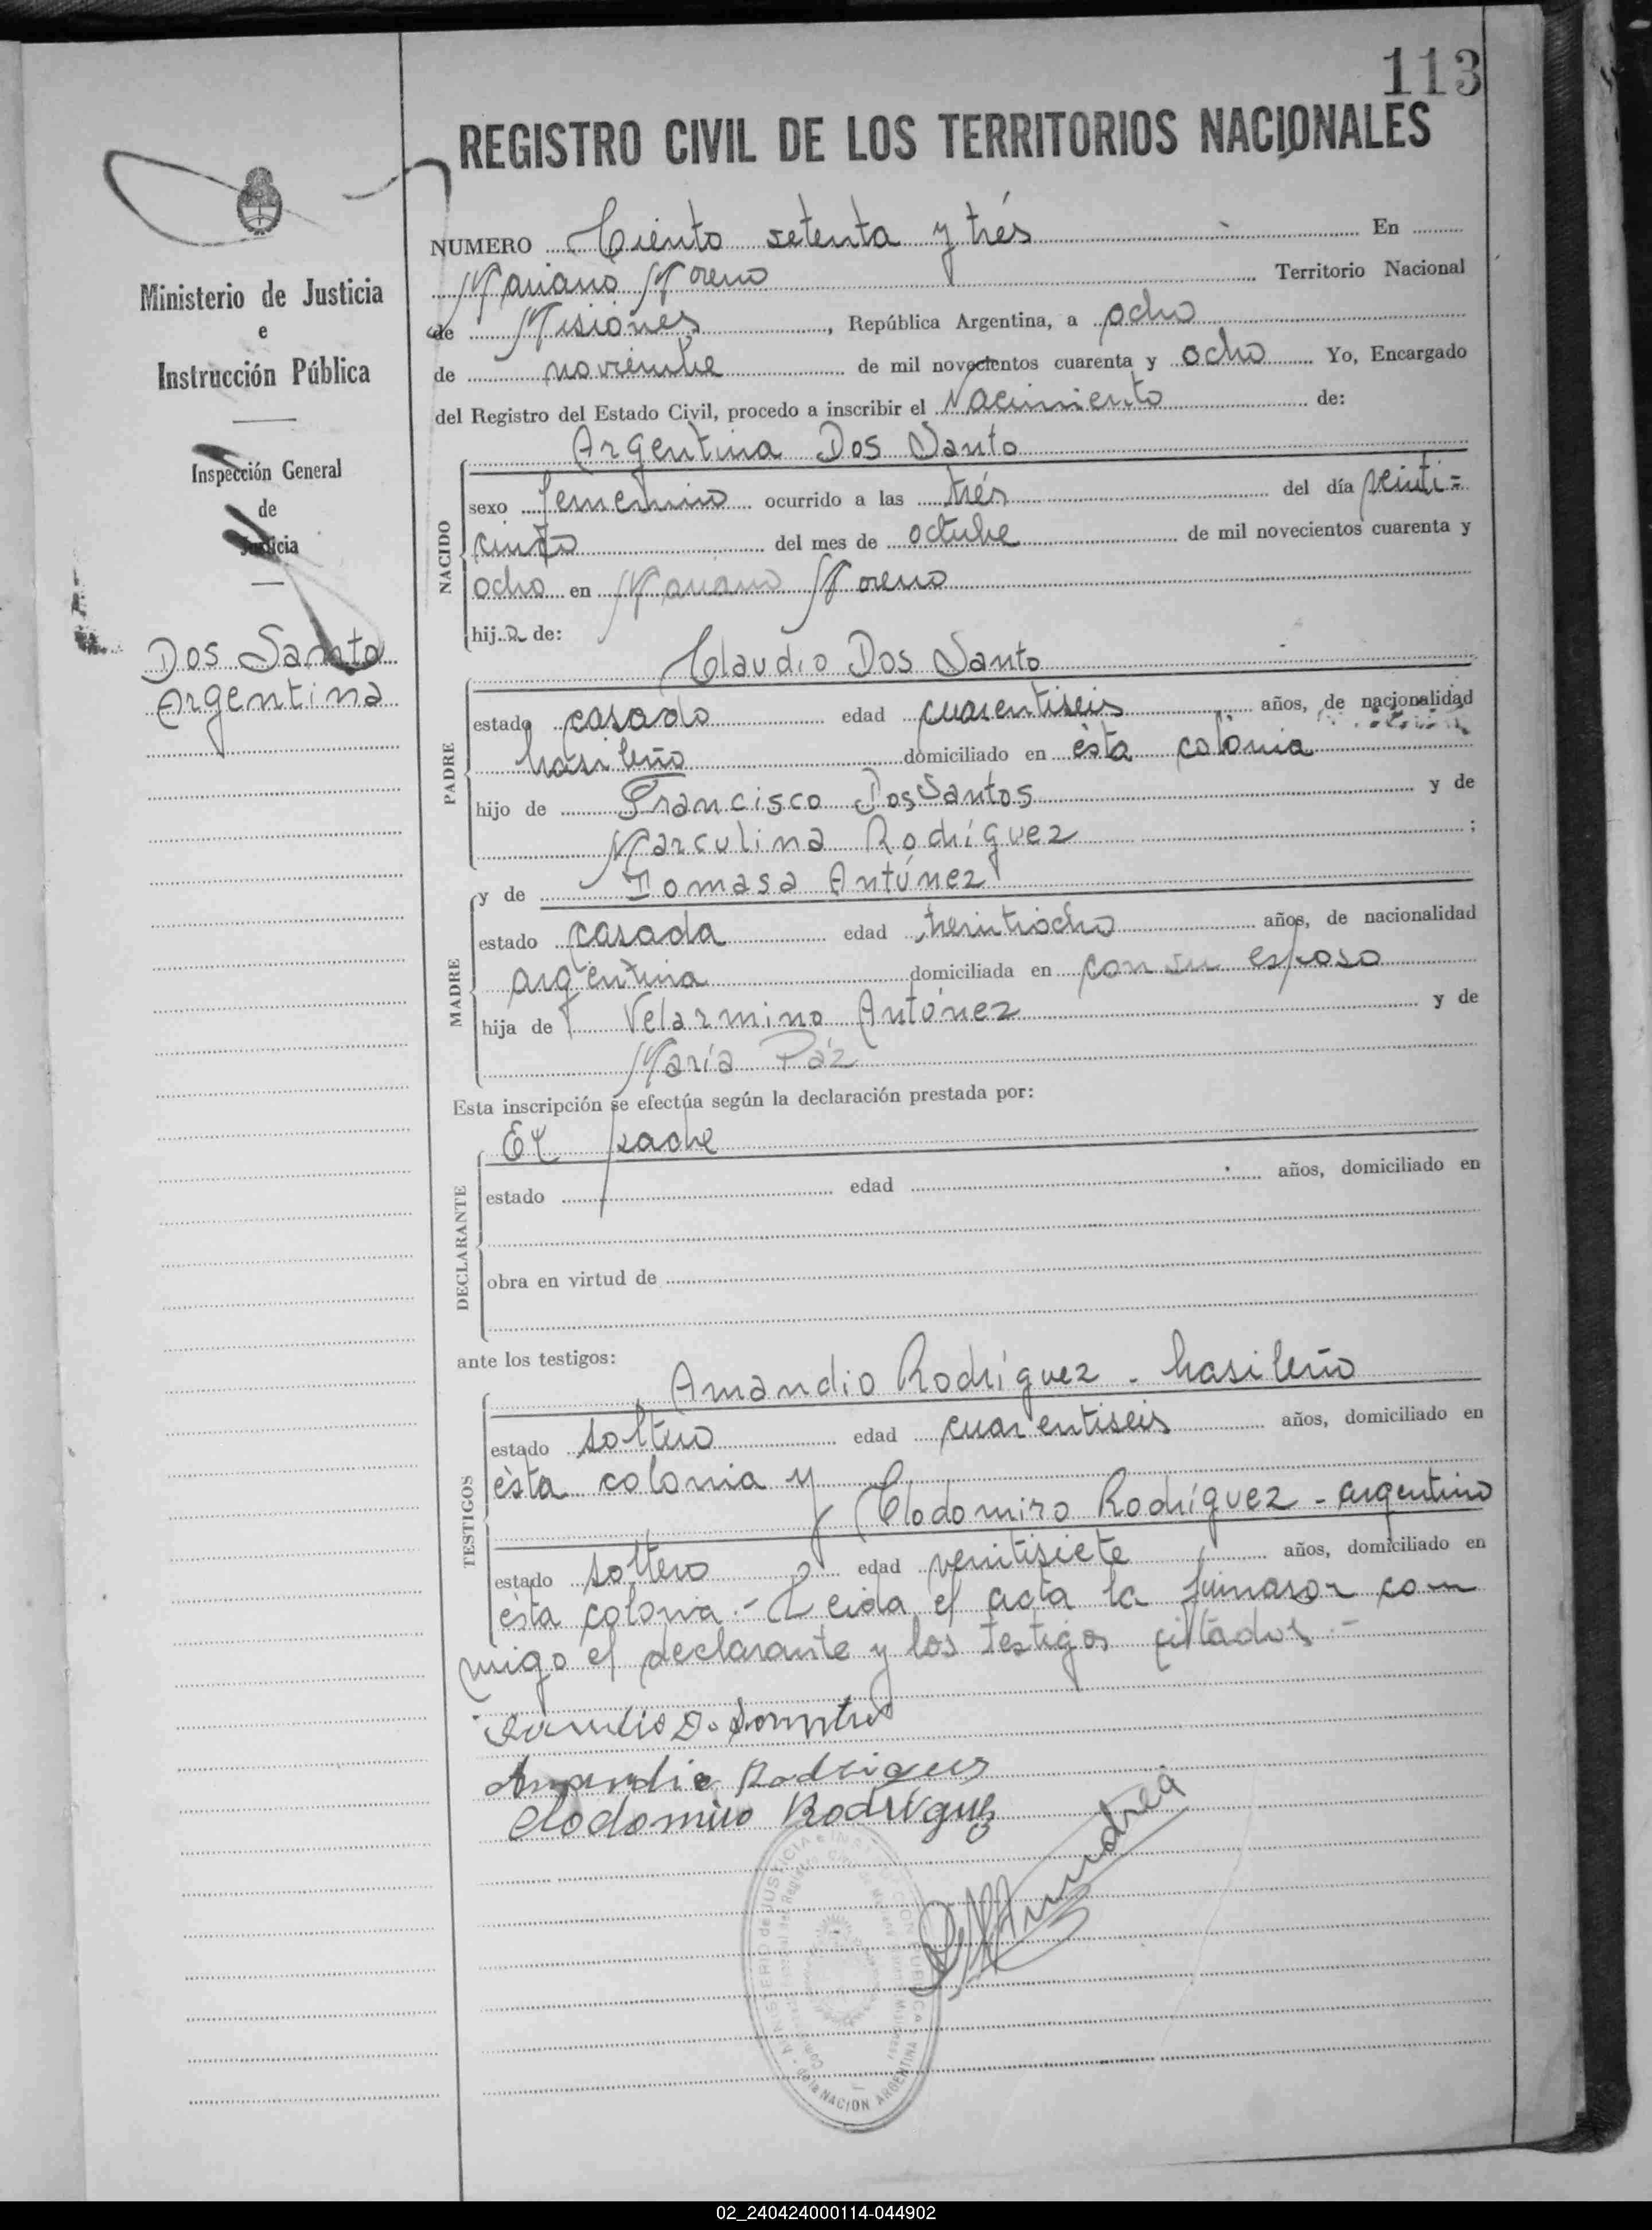 113
REGISTRO CIVIL DE LOS TERRITORIOS NACIONALES
NUMERO Ciento setenta y trés En
Mariano Moreno Territorio Nacional
de Misiones, República Argentina, a ocho
de noviembre de mil novecientos cuarenta y ocho Yo, Encargado
del Registro del Estado Civil, procedo a inscribir el Nacimiento de:
Ministerio de Justicia
e
Instrucción Pública
Inspección General
de
Justicia
Dos Santo
Argentina
NACIDO
Argentina Dos Santo
sexo femenino ocurrido a las trés del día veinti=
cinco del mes de octubre de mil novecientos cuarenta y
ocho en Mariano Moreno
hija de:
PADRE
Claudio Dos Santo
estado casado edad cuarentiseis años, de nacionalidad
brasileño domiciliado en èsta colonia
hijo de Francisco Dos Santos y de
Marculina Rodríguez ;
MADRE
y de Tomasa Antúnez
estado casada edad treintiocho años, de nacionalidad
argentina domiciliada en con su esposo
hija de Velarmino Antúnez y de
María Páz
Esta inscripción se efectúa según la declaración prestada por:
DECLARANTE
El padre
estado edad años, domiciliado en
obra en virtud de
ante los testigos:
TESTIGOS
Amandio Rodríguez - brasileño
estado soltero edad cuarentiseis años, domiciliado en
èsta colonia y
Clodomiro Rodríguez - argentino
estado soltero edad veintisiete años, domiciliado en
èsta colonia.- Leida el acta la firmaron con
migo el declarante y los testigos citados.-
Amandio Rodrigues
Clodomiro Rodríguez
MINISTERIO de JUSTICIA e INSTRUCCION PUBLICA
de la NACION ARGENTINA
02_240424000114-044902